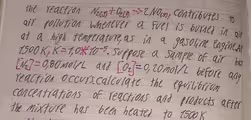 the reaction N2(g)+O2(g)⇌2NO(g) contributes to
air pollution whenever a fuel is burned in air
at a high temperature, as in a gasoline engine. At
1500K, K=1.0×10⁻⁵. Suppose a sample of air has
[N2]=0.80mol/L and [O2]=0,20mol/L before any
reaction occurs. calculate the equilibrium
concentrations of reactions and products after
the mixture has been heated to 1500K